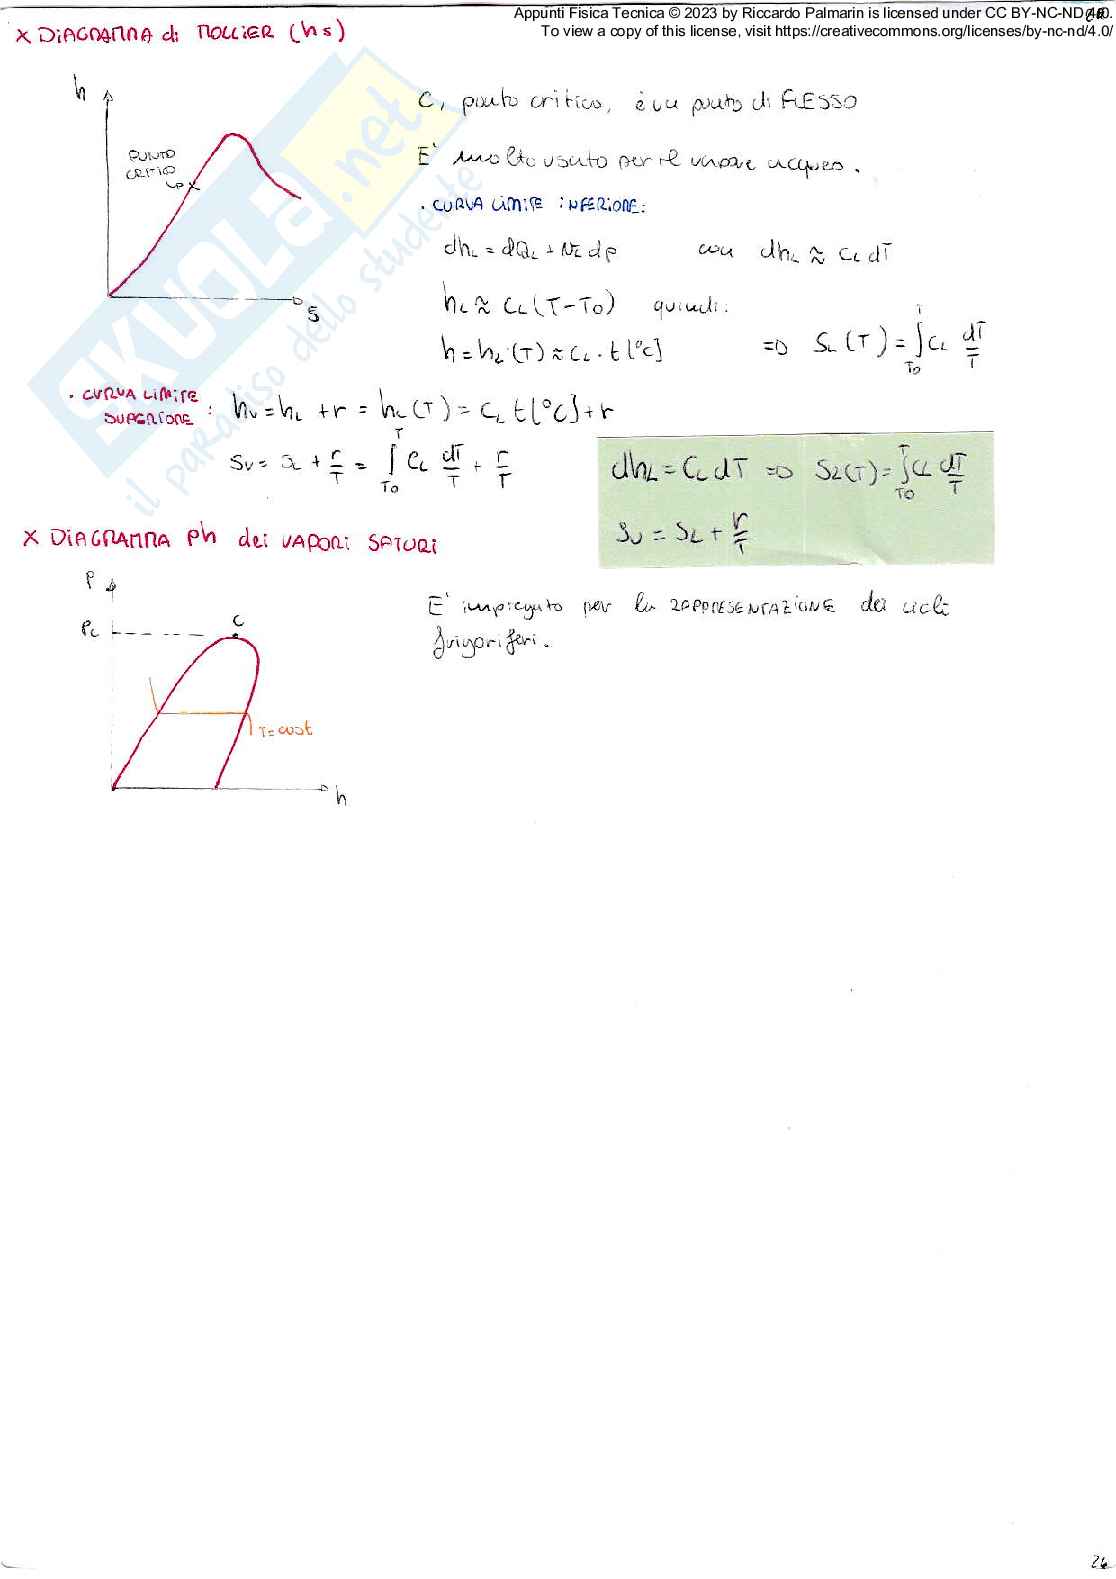 Appunti Fisica Tecnica © 2023 by Riccardo Palmarin is licensed under CC BY-NC-ND 4.0.
To view a copy of this license, visit https://creativecommons.org/licenses/by-nc-nd/4.0/
x DIAGRAMMA di MOLLIER (hs)
h
PUNTO
CRITICO
s
C, punto critico, è un punto di FLESSO
E' molto usato per il vapore acqueo.
• CURVA LIMITE INFERIORE:
dhL = dQL + vL dp con dhL ≈ CL dT
hL ≈ CL (T-T0) quindi:
h = hL (T) ≈ CL · t [°C] => SL (T) = ∫ T0 T CL dT/T
• CURVA LIMITE SUPERIORE: hv = hL + r = hL (T) = CL t [°C] + r
Sv = SL + r/T = ∫ T0 T CL dT/T + r/T
dhL = CL dT => SL(T) = ∫ T0 T CL dT/T
Sv = SL + r/T
x DIAGRAMMA Ph dei VAPORI SATURI
P
Pc
C
T = cost
h
E' impiegato per la RAPPRESENTAZIONE dei cicli
frigoriferi.
SKUOLA.net
il paradiso dello studente
26